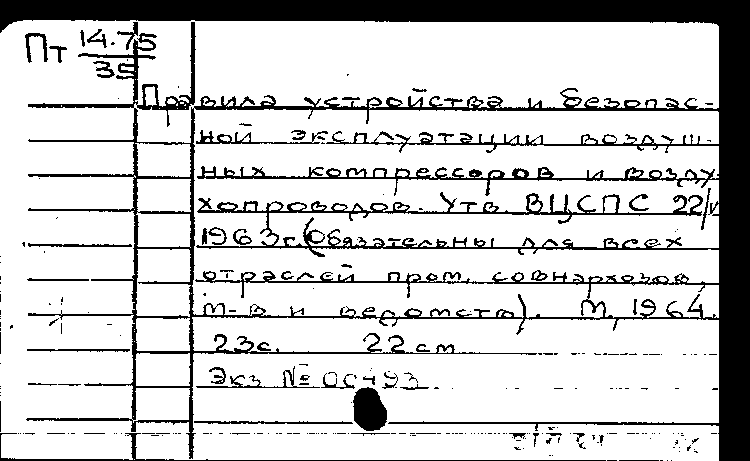 Пт 14.75
35
Правила устройства и безопас-
ной эксплуатации воздуш-
ных компрессоров и возду-
хопроводов. Утв ВЦСПС 22/V
1963г.(Обязательны для всех
отраслей пром. совнархозов,
м-в и ведомств). М, 1964.
23с. 22 см
Экз № 00493.